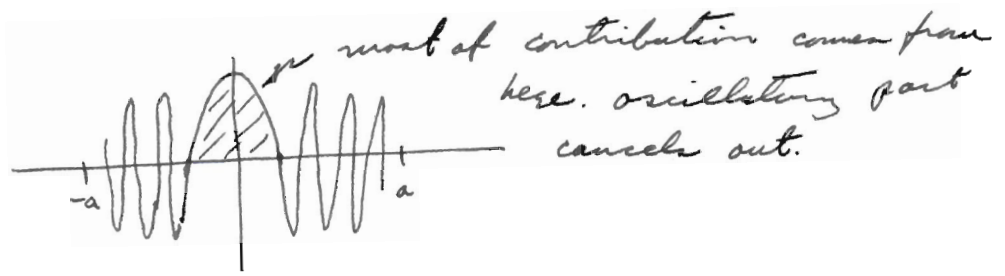 most of contribution comes from
here. oscillatory part
cancels out.
-a
a